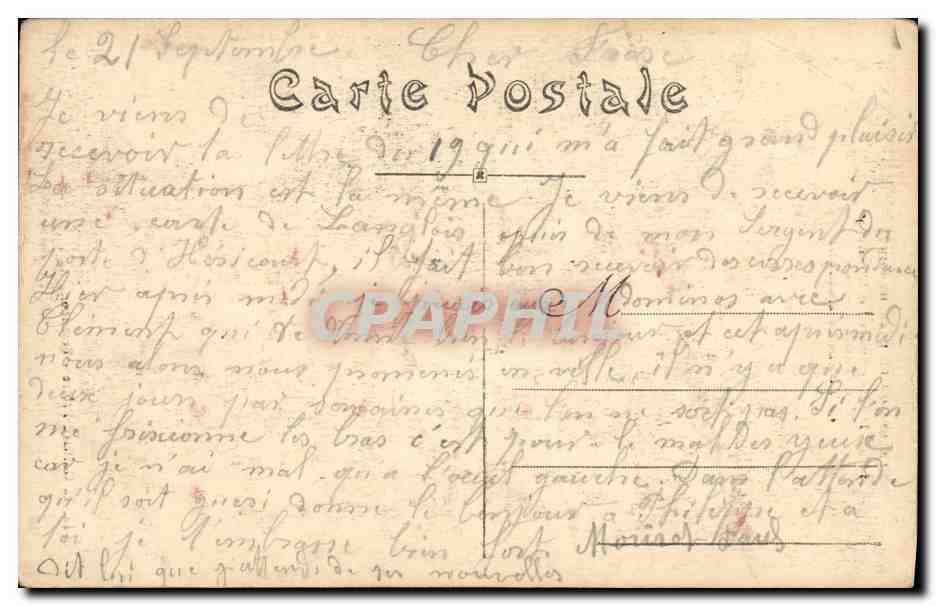 le 21 Septembre Cher Frère
Carte Postale
Je viens de
recevoir ta lettre du 19 qui m'a fait grand plaisir
La situation est la même. Je viens de recevoir
une carte de Langlois, puis de mon Sergent du
poste d'Héricourt, il fait bon recevoir des correspondances
Hier après midi je dominos avec
M
CPAPHIL
Clément qui te bonjour et cet apres midi
nous alons nous promenés en ville, il n'y a que
deux jours par semaines que l'on ne sort pas. Si l'on
me frixionne les bras c'est pour le mal des yeux
car je n'ai mal qu'a l'oeuil gauche. Dans l'attende
qu'il soit gueri donne le bonjour a Philippe et a
toi je t'embrasse bien fort. Mouret Paul
Dit lui que j'attend de ses nouvelles